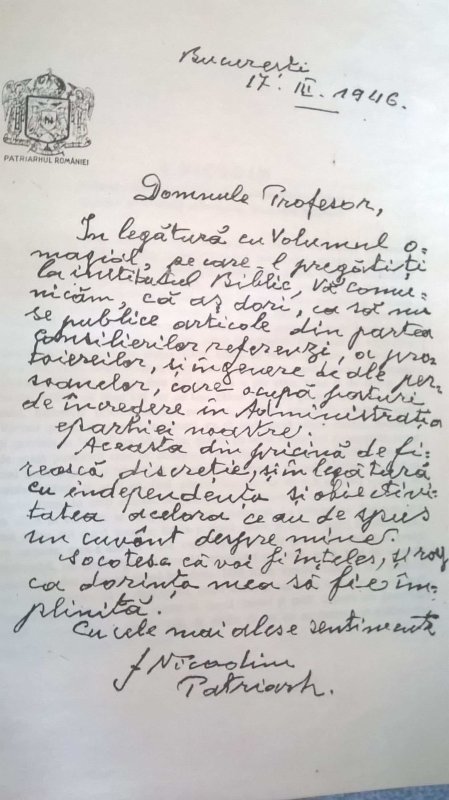 București
17. III. 1946.
PATRIARHUL ROMÂNIEI
Domnule Profesor,
In legătură cu Volumul o-
magial, pe care-l pregătiți
la institutul Biblic, Vă comu-
nicăm, că aș dori, ca să nu
se publice articole din partea
consilierilor referenzi, a pro-
toiereilor, și îngenere de ale per-
soanelor, care ocupă posturi
de încredere în Administrația
eparhiei noastre.
Aceasta din pricină de fi-
rească discreție, și în legătură
cu independența și obiectivi-
tatea acelora ce au de spus
un cuvânt despre mine.
Socotesc că voi fi înțeles, și rog
ca dorința mea să fie îm-
plinită.
Cu cele mai alese sentimente
† Nicodim
Patriarh.